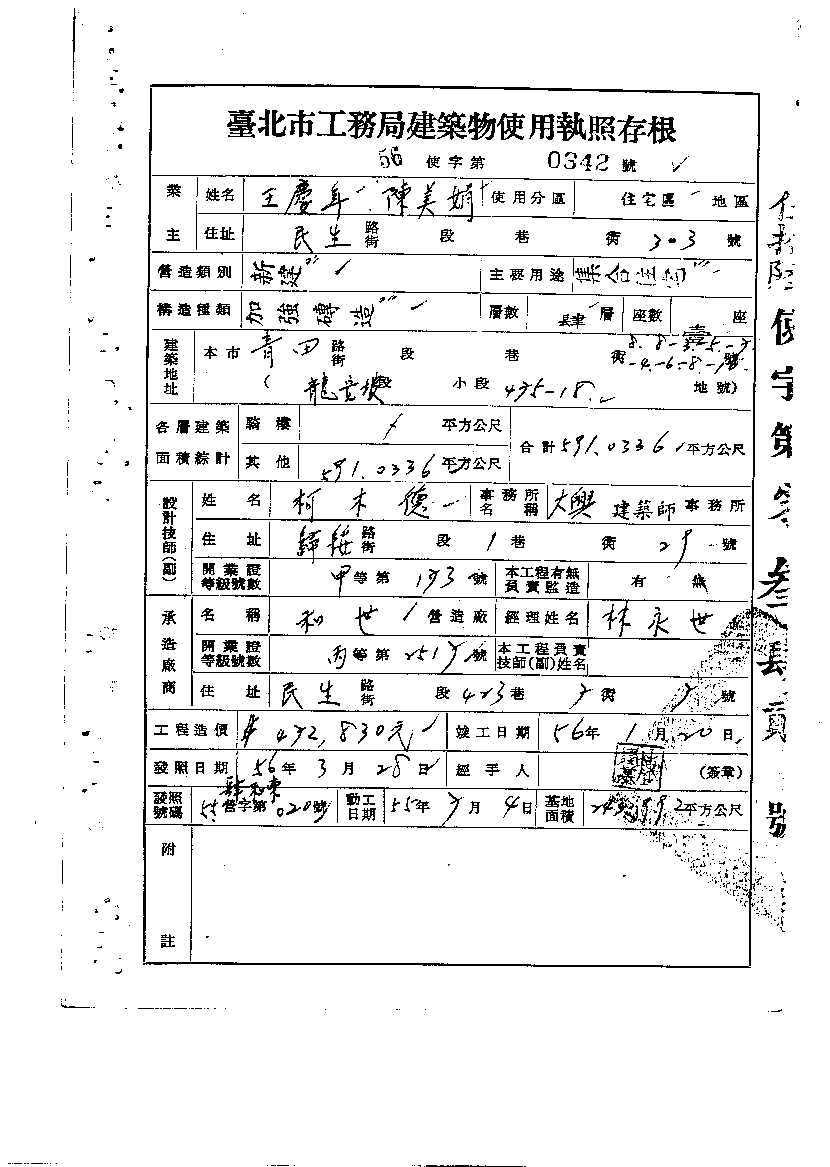 臺北市工務局建築物使用執照存根
56 使字第 0342 號
業主 姓名 王慶年 陳美娟 使用分區 住宅區 地區
住址 民生 路街 段 巷 街 303 號
營造類別 新建 主要用途 集合住宅
構造種類 加強磚造 層數 肆 層 座數 壹 座
建築地址 本市 青田 路街 段 巷 街 號
( 龍安坡 段 小段 435-18 地號)
各層建築面積綜計 騎樓 平方公尺 合計 591.0336 平方公尺
其他 591.0336 平方公尺
設計技師(副) 姓名 柯木德 事務所名稱 大興 建築師 事務所
住址 路街 段 1 巷 街 29 號
開業證等級號數 甲 等第 193 號 本工程有無負責監造 有 無
承造廠商 名稱 和世 營造廠 經理姓名 林永世
開業證等級號數 丙 等第 號 本工程負責技師(副)姓名
住址 民生 路街 段 423 巷 街 號
工程造價 432,830元 竣工日期 56年 1月 20日
發照日期 56年 3月 28日 經手人 (簽章)
發照號碼 55 營字第 號 動工日期 55年 月 4日 基地面積 平方公尺
附註
使字第零叁 頁 號